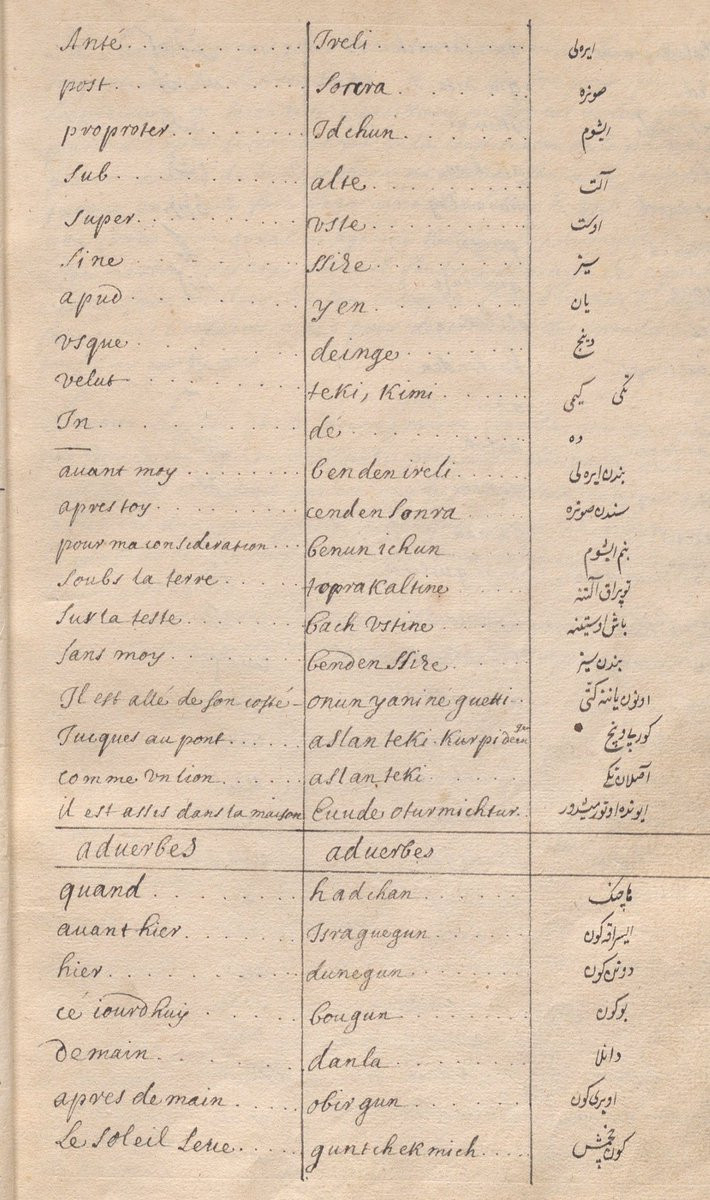 Anté Ireli ايره لى
post Sorera صوڭره
proproter Idchun ايشوم
sub alte آلت
super vste اوست
sine ssize سيز
apud yen يان
vsque deinge دينج
velut teki, Kimi تكى كيمى
In dé ده
auant moy benden ireli بندن ايره لى
apres toy cenden sonra سندن صوڭره
pour ma consideration benun ichun بنم ايشوم
soubs la terre toprak altine توپراق آلتنه
sur la teste bach vstine باش اوستينه
sans moy benden ssize بندن سيز
Il est allé de son costé onun yanine guetti اونون ياننه كتى
Jucques au pont aslan teki Kurpi كورپى دينج
comme vn lion aslan teki آصلان تكى
il est assis dans la maison Euude oturmichtur ايونده اوتورميشدور
aduerbes aduerbes
quand hadchan هاچن
auant hier Israguegun ايسراقه كون
hier dunegun دونن كون
cé iourdhuy bougun بوكون
demain danla دانلا
apres demain obir gun اوبرى كون
Le soleil Leue guntchekmich كون چخمش